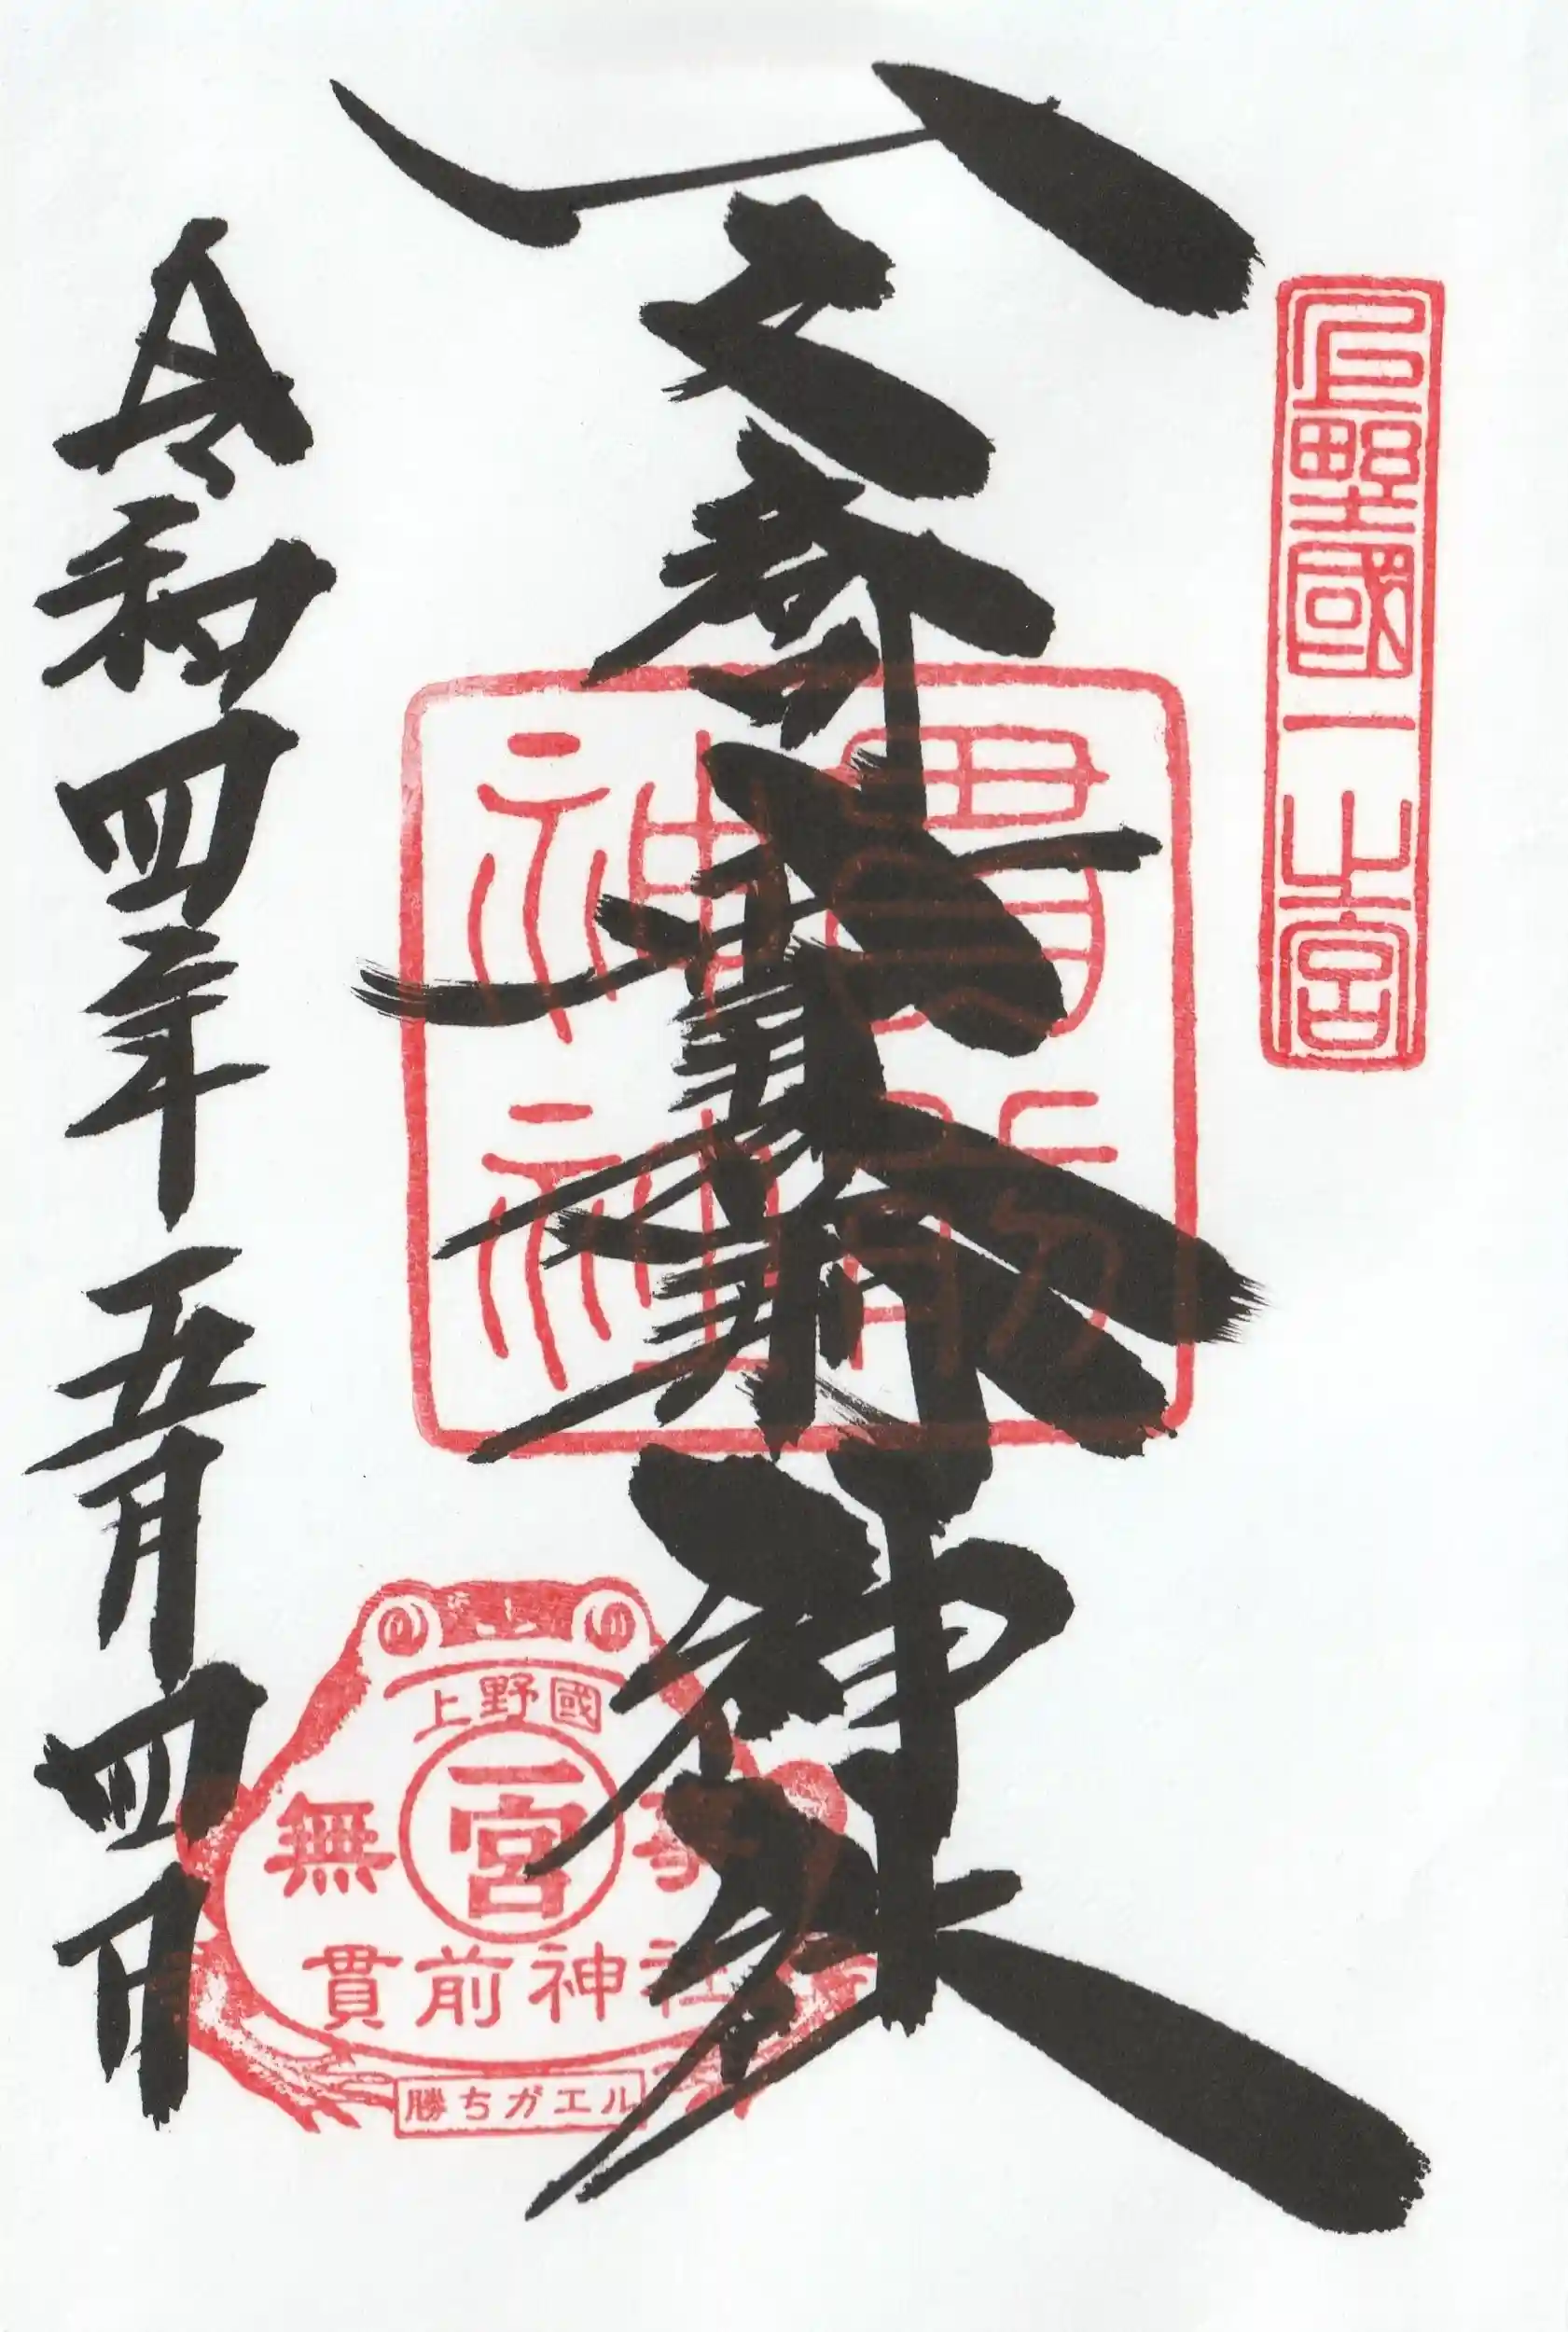 上野國一之宮
神社
貫前
神社
令和四年五月四日
上野國
一宮
無事
貫前神社
勝ちガエル